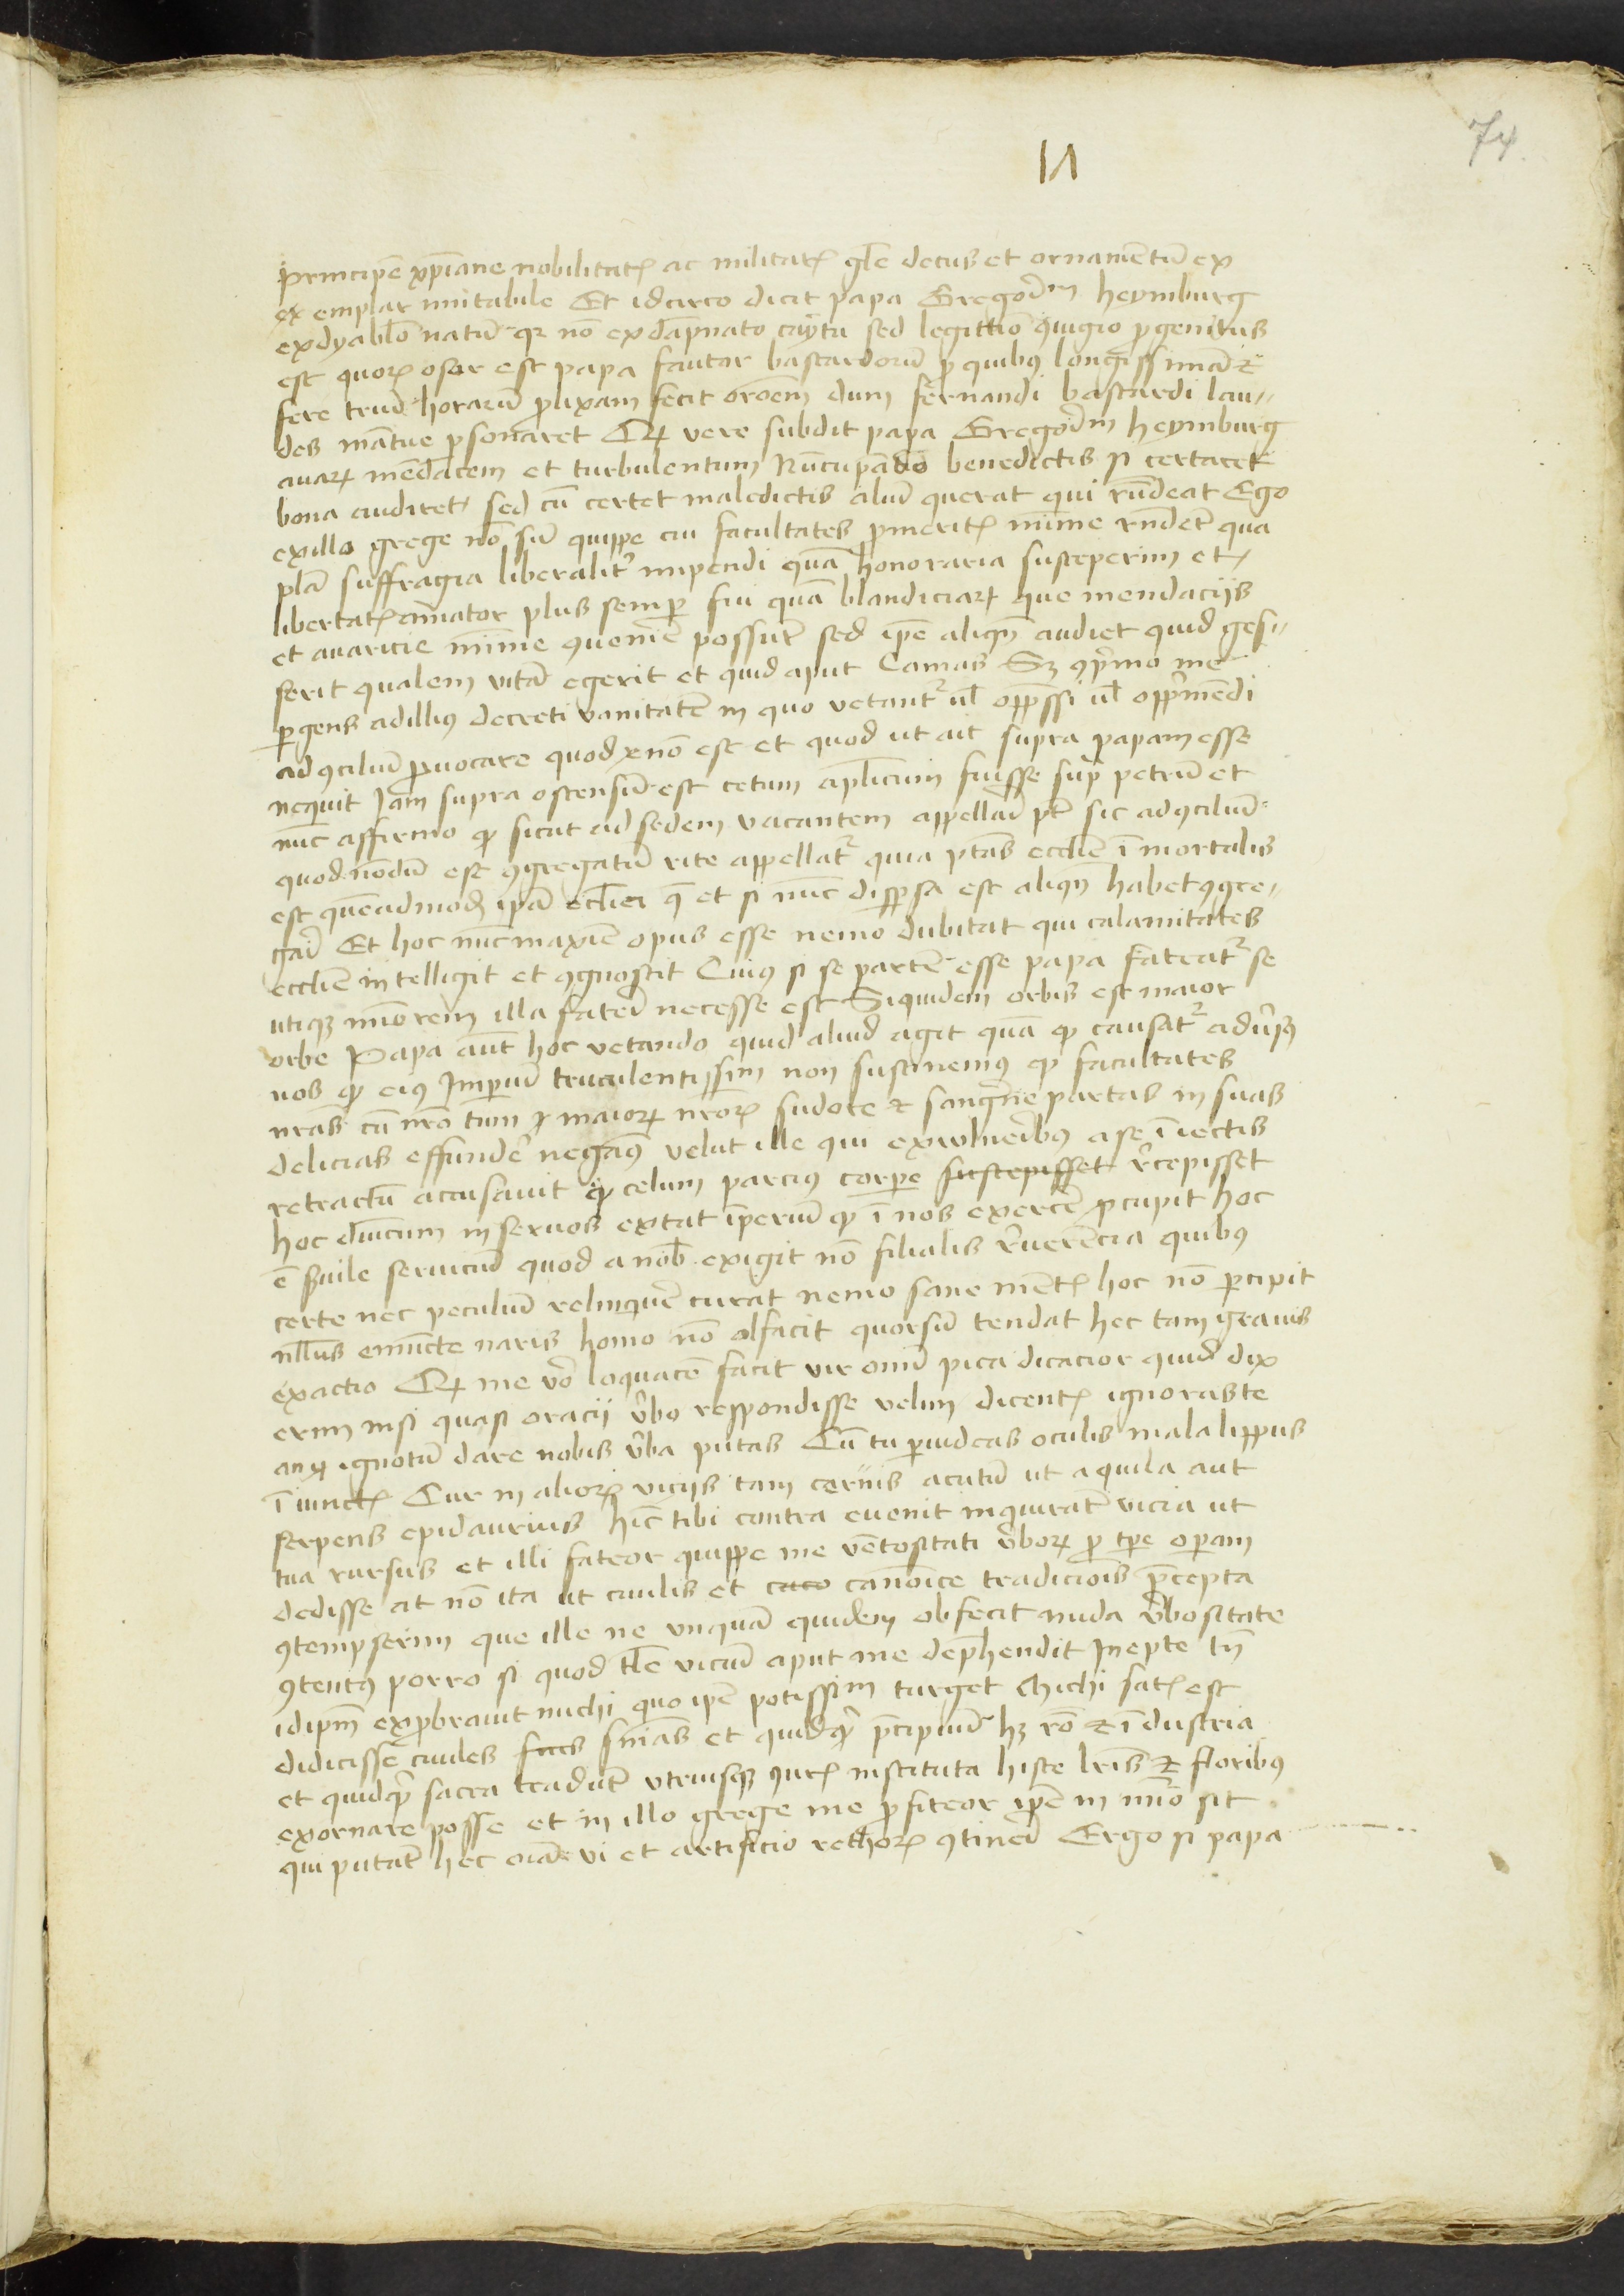 74
principē xp̄iane nobilitatꝭ ac militarꝭ gl̄e decus et ornamentū ex
ex emplar imitabile Et idcirco dicit papa Gregoriū heymburg
ex dyabl̄o natū qr nō ex dāpnato coytu sed legittīo ꝯiugio ꝓgenitus
est quoꝝ osor est papa fautor bastardorū ꝓ quibꝰ longissimā et
fere triū horarū ꝓlixam fecit orōem dum fernandi bastardi lau-
des mātue ꝑsonaret Qꝫ vero subdit papa Gregoriū heymburg
auarꝫ mēdacem et turbulentum Nūcupādo benedictis si certaret
bona audiret sed cū certet maledictis aliū querat qui rn̄deat Ego
ex illo grege nō sū quippe cui facultates ꝓ meritꝭ mīme rn̄dēt qua
plā suffragia liberalitr̄ impendi quā honoraria susceperim et
libertatꝭ amator plus semꝑ fui quā blandiciarꝫ que mendaciis
et auaricie mīme ꝯuenire possūt sed ip̄e aliqn̄ audiet quid ges-
serit qualem vitā egerit et quid aput Camas Sꝫ ꝯprimo me
ꝑgens ad illiꝰ decreti vanitatē in quo vetantr̄ ul̄ opp̄ssi ul̄ opprimēdi
ad ꝯciliū ꝓuocare quod nō est et quod ut ait supra papam esse
nequit Jam supra ostensū est cetum ap̄licum fuisse supra petrū et
nūc affirmo qꝫ sicut ad sedem vacantem appellari pt̄ sic ad ꝯciliū
quod nōdū est ꝯgregatū rite appellatr̄ quia ptās eccl̄ie īmortalis
est quēadmodū ip̄a ecclia q̄ et si nūc disp̄sa est aliqn̄ habet ꝯgre-
gari Et hoc nūc maxīe opus esse nemo dubitat qui calamitates
eccl̄ie intelligit et ꝯgnoscit Cuiꝰ si se partē esse papa fateatr̄ se
utiqꝫ mīorem illa fateri necesse est Siquidem orbis est maior
vrbe Papa aūt hoc vetando quid aliud agit quā qꝫ causatr̄ aduersꝰ
nos qꝫ eiꝰ Imperiū truculentissim̄ non sustinemꝰ qꝫ facultates
nr̄as cū nr̄o tum maiorꝫ nr̄oꝝ sudore et sanguine partas in suas
delicias effundere negamꝰ velut ille qui ex vulneribꝰ a se īiectis
retractū accusauit qꝫ telum parciꝰ corpe suscepisset recepisset
hoc dn̄icum in seruos extat īperiū qꝫ ī nos exercere p̄cupit hoc
ē seruile seruiciū quod a nob exigit nō filialis reuerēcia quibꝰ
certe nec peculiū relinquere curat nemo sane mētꝭ hoc nō ꝑcipit
nll̄us emūcte naris homo nō olfacit quorsū tendat hec tam grauis
exactio Qꝫ me vero loquacē facit vir omī pica dicacior quid dix
erim nisi quasi oracii verbo respondisse velim dicentꝭ ignoras te
an ignotū dare nobis verba putas Cū tu ꝑuideas oculis mala lippus
īiunctꝭ Cur in alioꝝ viciis tam cernis acutū ut aquila aut
serpens epidaurius hīc tibi contra euenit inquirāt vicia ut
tua rursus et illi fateor quippe me vētositati verborꝫ ꝓ tpe operam
dedisse at nō ita ut ciuilis et canōice tradiciōis p̄cepta
ꝯtempserim que ille ne vnquā quidem obfecit nuda verbositate
ꝯtentꝰ porro si quod tl̄e viciū aput me dep̄hendit Inepte tn̄
idip̄m exprobrauit michi quo ip̄e potissim̄ turget Michi satꝭ est
didicisse ciuiles snīas et quidqꝫ p̄cipuū hꝫ rō et īdustria
et quidqꝫ sacra tradūt vtriusqꝫ iurꝭ instituta hisce lr̄is et floribꝰ
exornare posse et in illo grege me ꝓfiteor ip̄e in mīo sit
qui putat hec oīa vi et artificio rethorꝭ ꝯtineri Ergo si papa